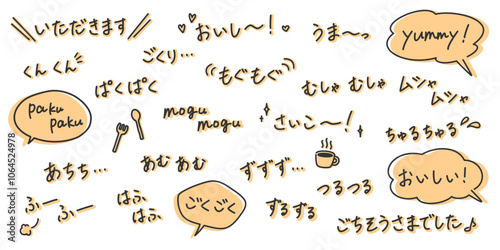 いただきます
おいし〜！
うま〜っ
yummy!
くんくん
ごくり…
もぐもぐ
むしゃ むしゃ
ムシャ
ムシャ
ぱくぱく
paku
paku
mogu
mogu
さいこ〜！
ちゅるちゅる
あちち…
あむ あむ
ずずず…
おいしい！
つるつる
ふー
ふー
はふ
はふ
ごくごく
ずるずる
ごちそうさまでした♪
Adobe Stock | #1064524978